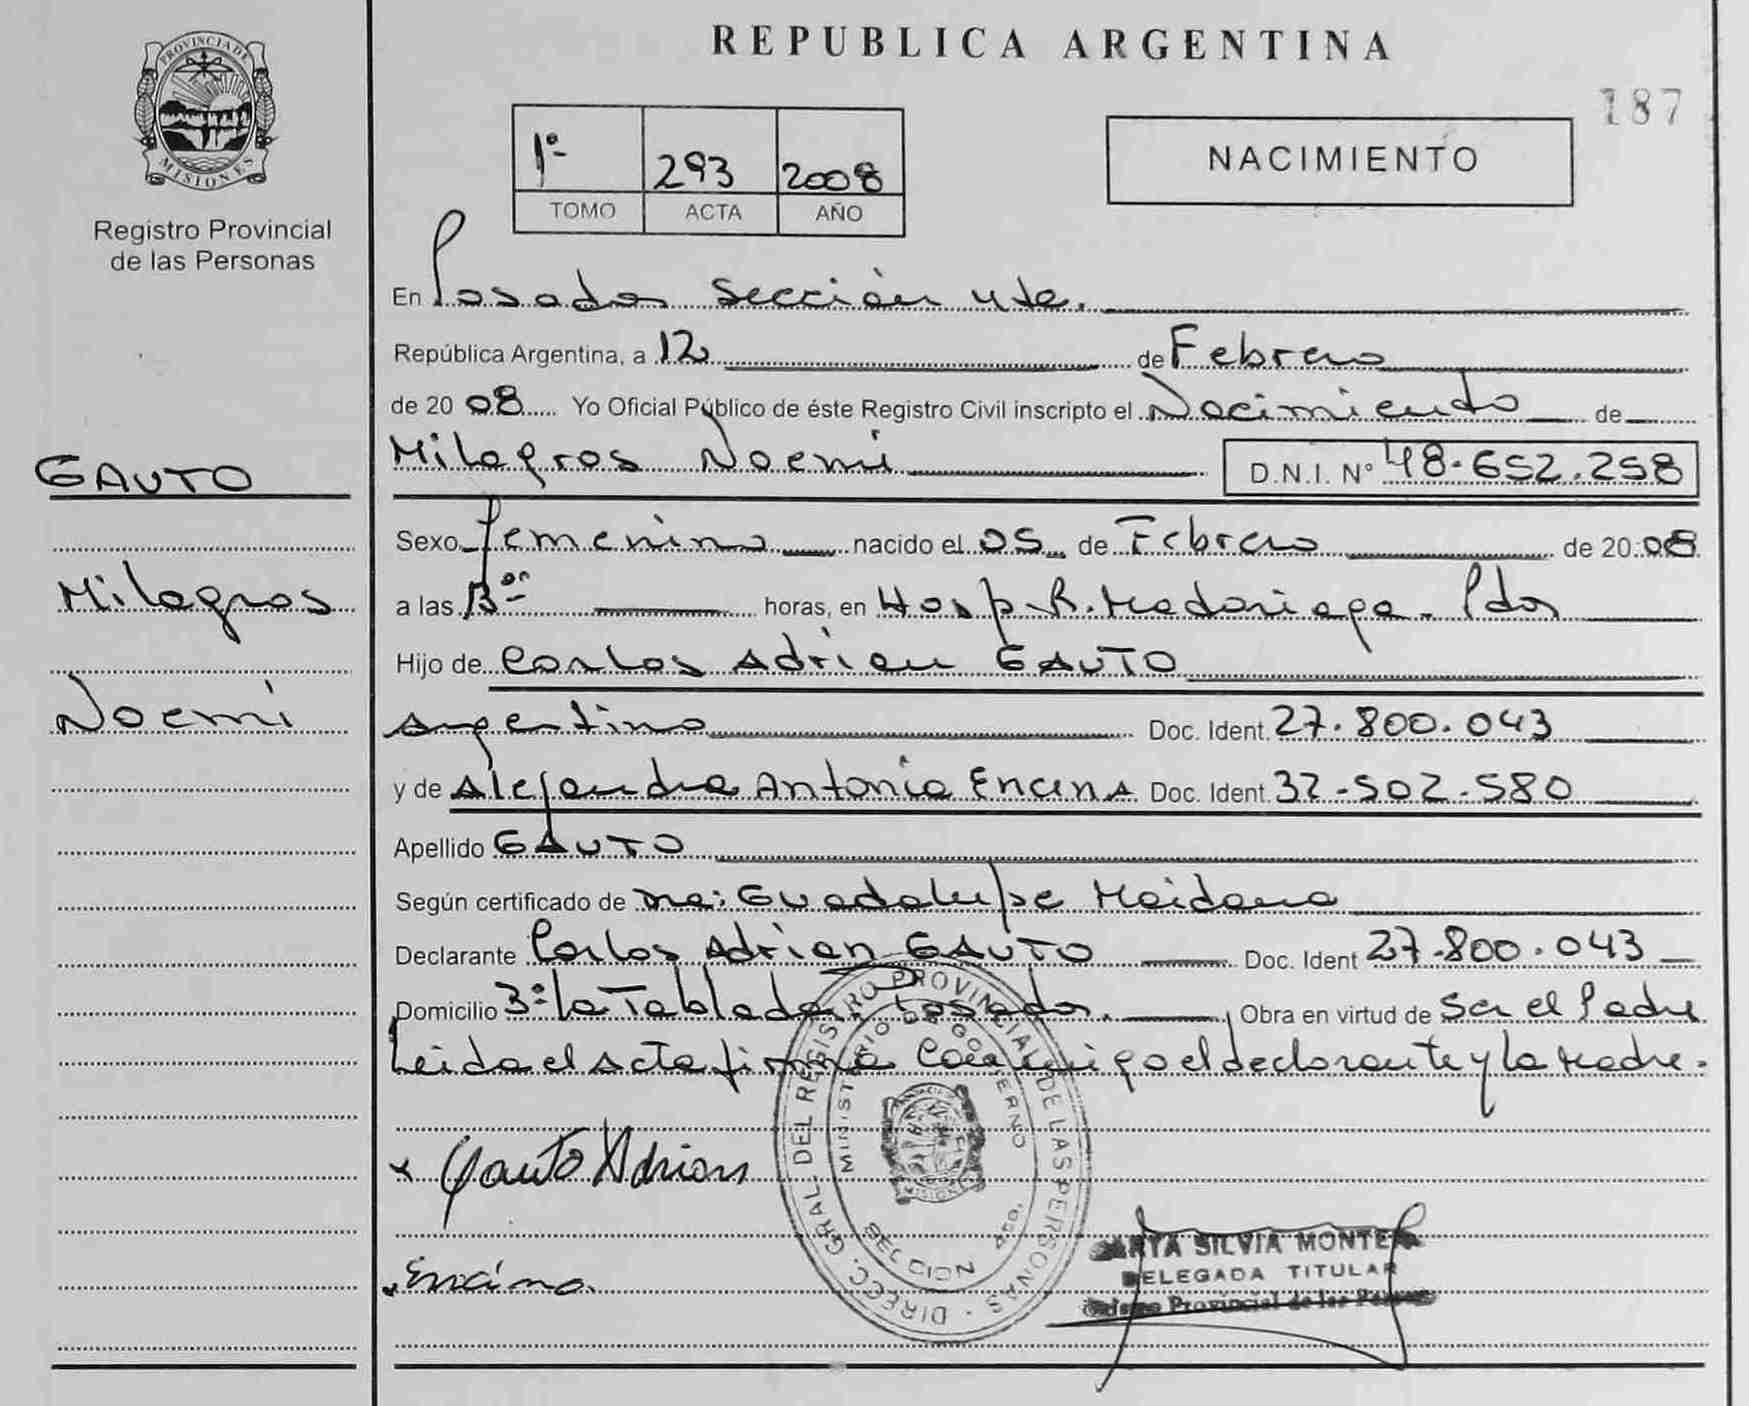 PROVINCIA DE
MISIONES
Registro Provincial
de las Personas
GAUTO
Milagros
Noemi
REPUBLICA ARGENTINA
187
1º 293 2008
TOMO ACTA AÑO
NACIMIENTO
En Posadas Sección 4ta.
República Argentina, a 12 de Febrero
de 2008 Yo Oficial Público de éste Registro Civil inscripto el Nacimiento de
Milagros Noemi D.N.I. Nº 48.652.258
Sexo femenino nacido el 05 de Febrero de 2008
a las 13 horas, en Hosp. R. Madariaga - Pdas
Hijo de Carlos Adrian GAUTO
Argentino Doc. Ident. 27.800.043
y de Alejandra Antonia Encina Doc. Ident. 32.502.580
Apellido GAUTO
Según certificado de Guadalupe Maidana
Declarante Carlos Adrian GAUTO Doc. Ident 27.800.043
Domicilio Bº La Tablada. Posadas. Obra en virtud de Ser el Padre
Leida el Acta firma Conmigo el declarante y la Madre.
x Gauto Adrian
Encina.
DIREC. GRAL. DEL REGISTRO PROVINCIAL DE LAS PERSONAS
MINISTERIO DE GOBIERNO
SECCION 4ta.
MISIONES
SILVIA MONTE
DELEGADA TITULAR
Provincial de las